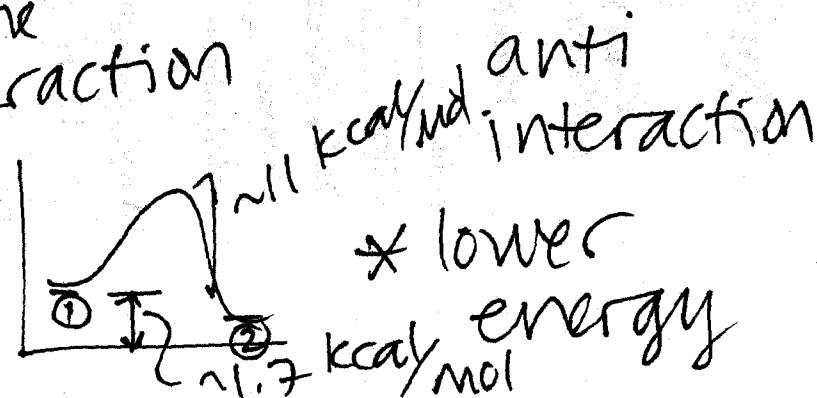 raction
anti
interaction
~11 kcal/mol
* lower
energy
①
②
~1.7 kcal/mol